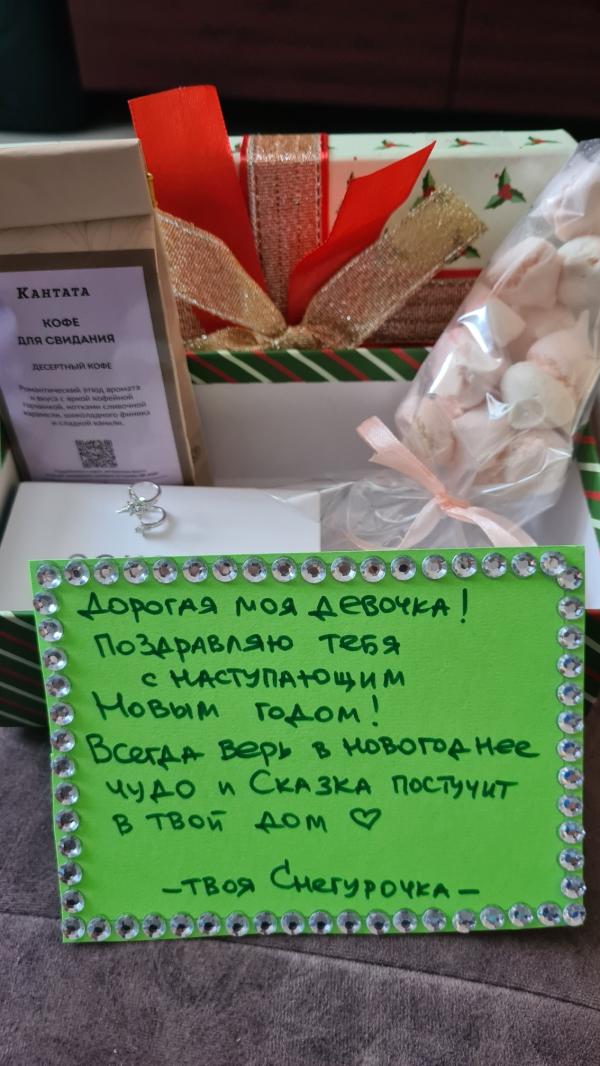 Кантата
КОФЕ
ДЛЯ СВИДАНИЯ
ДЕСЕРТНЫЙ КОФЕ
Романтический этюд аромата
и вкуса с яркой кофейной
горчинкой, нотками сливочной
карамели, шоколадного финика
и сладкой ванили.
Дорогая моя девочка!
Поздравляю тебя
с наступающим
Новым годом!
Всегда верь в новогоднее
чудо и Сказка постучит
в твой дом ♡
-твоя Снегурочка-